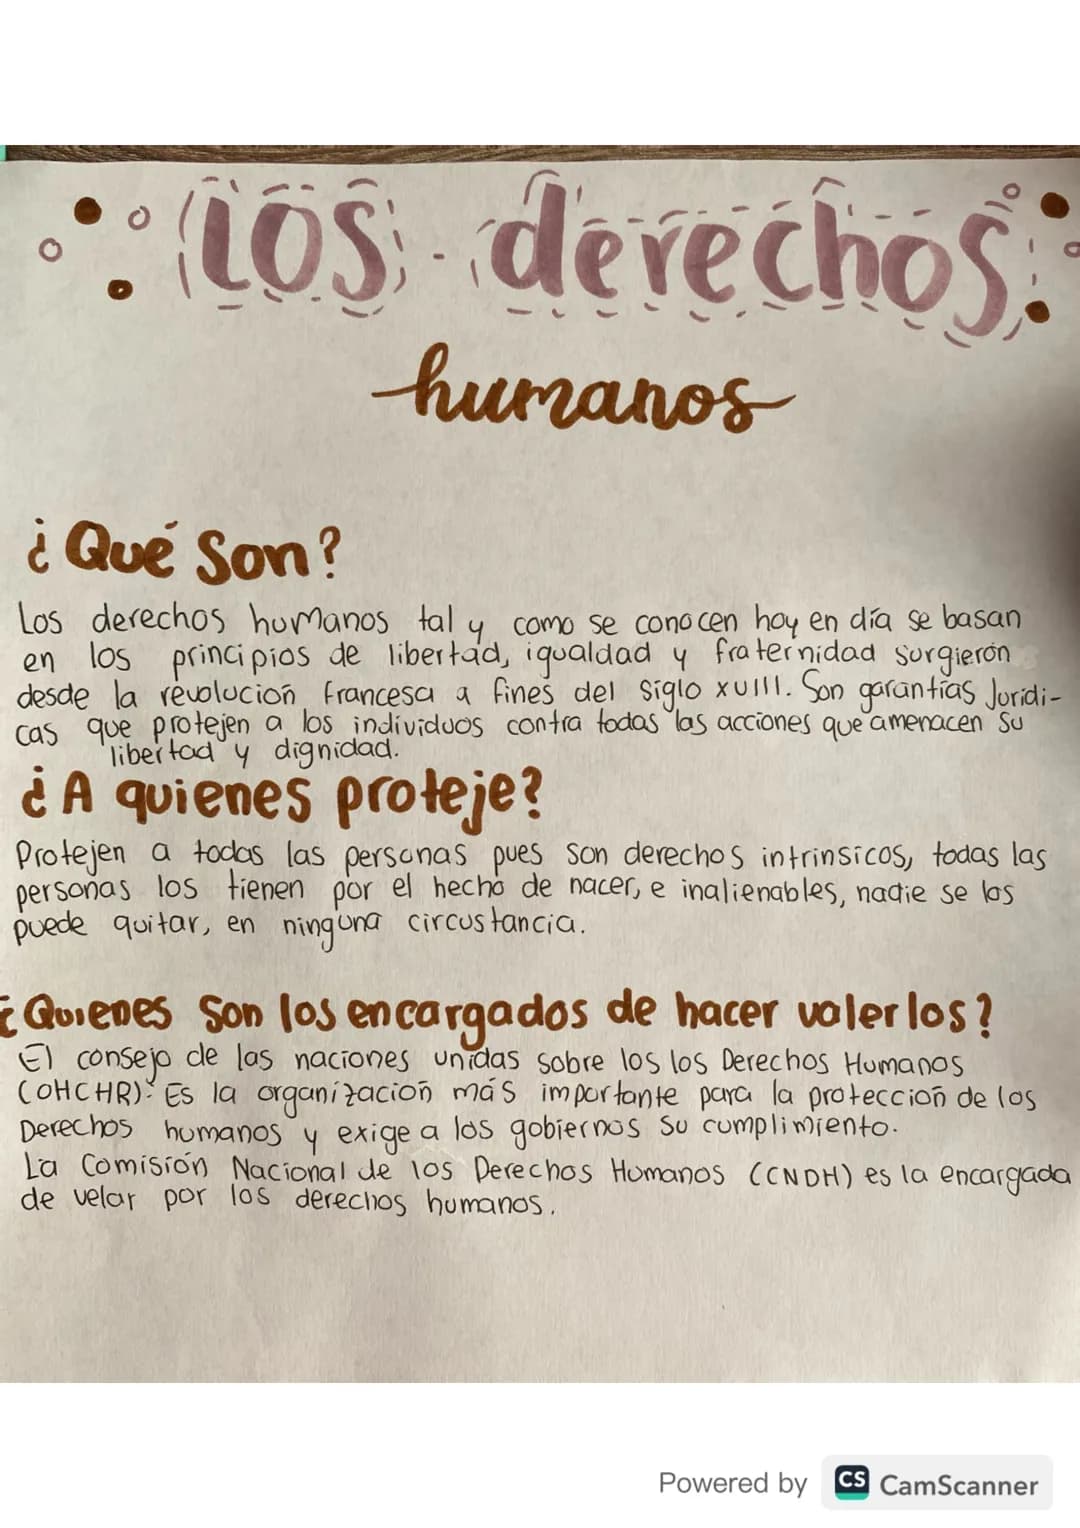 Los derechos
humanos
¿Qué Son?
Los derechos humanos tal y como se conocen hoy en día se basan
en los principios de libertad, igualdad y fraternidad surgierón
desde la revolución francesa a fines del siglo XVIII. Son garantías Juridi-
cas que protejen a los individuos contra todas las acciones que amenacen su
libertad y dignidad.
¿A quienes proteje?
Protejen a todas las personas pues son derechos intrinsicos, todas las
personas los tienen por el hecho de nacer, e inalienables, nadie se los
puede quitar, en ninguna circustancia.
¿Quienes Son los encargados de hacer valerlos?
El consejo de las naciones unidas sobre los los Derechos Humanos
(OHCHR): Es la organización más importante para la protección de los
Derechos humanos y exige a los gobiernos su cumplimiento.
La Comisión Nacional de los Derechos Humanos (CNDH) es la encargada
de velar por los derechos humanos.
Powered by CS CamScanner